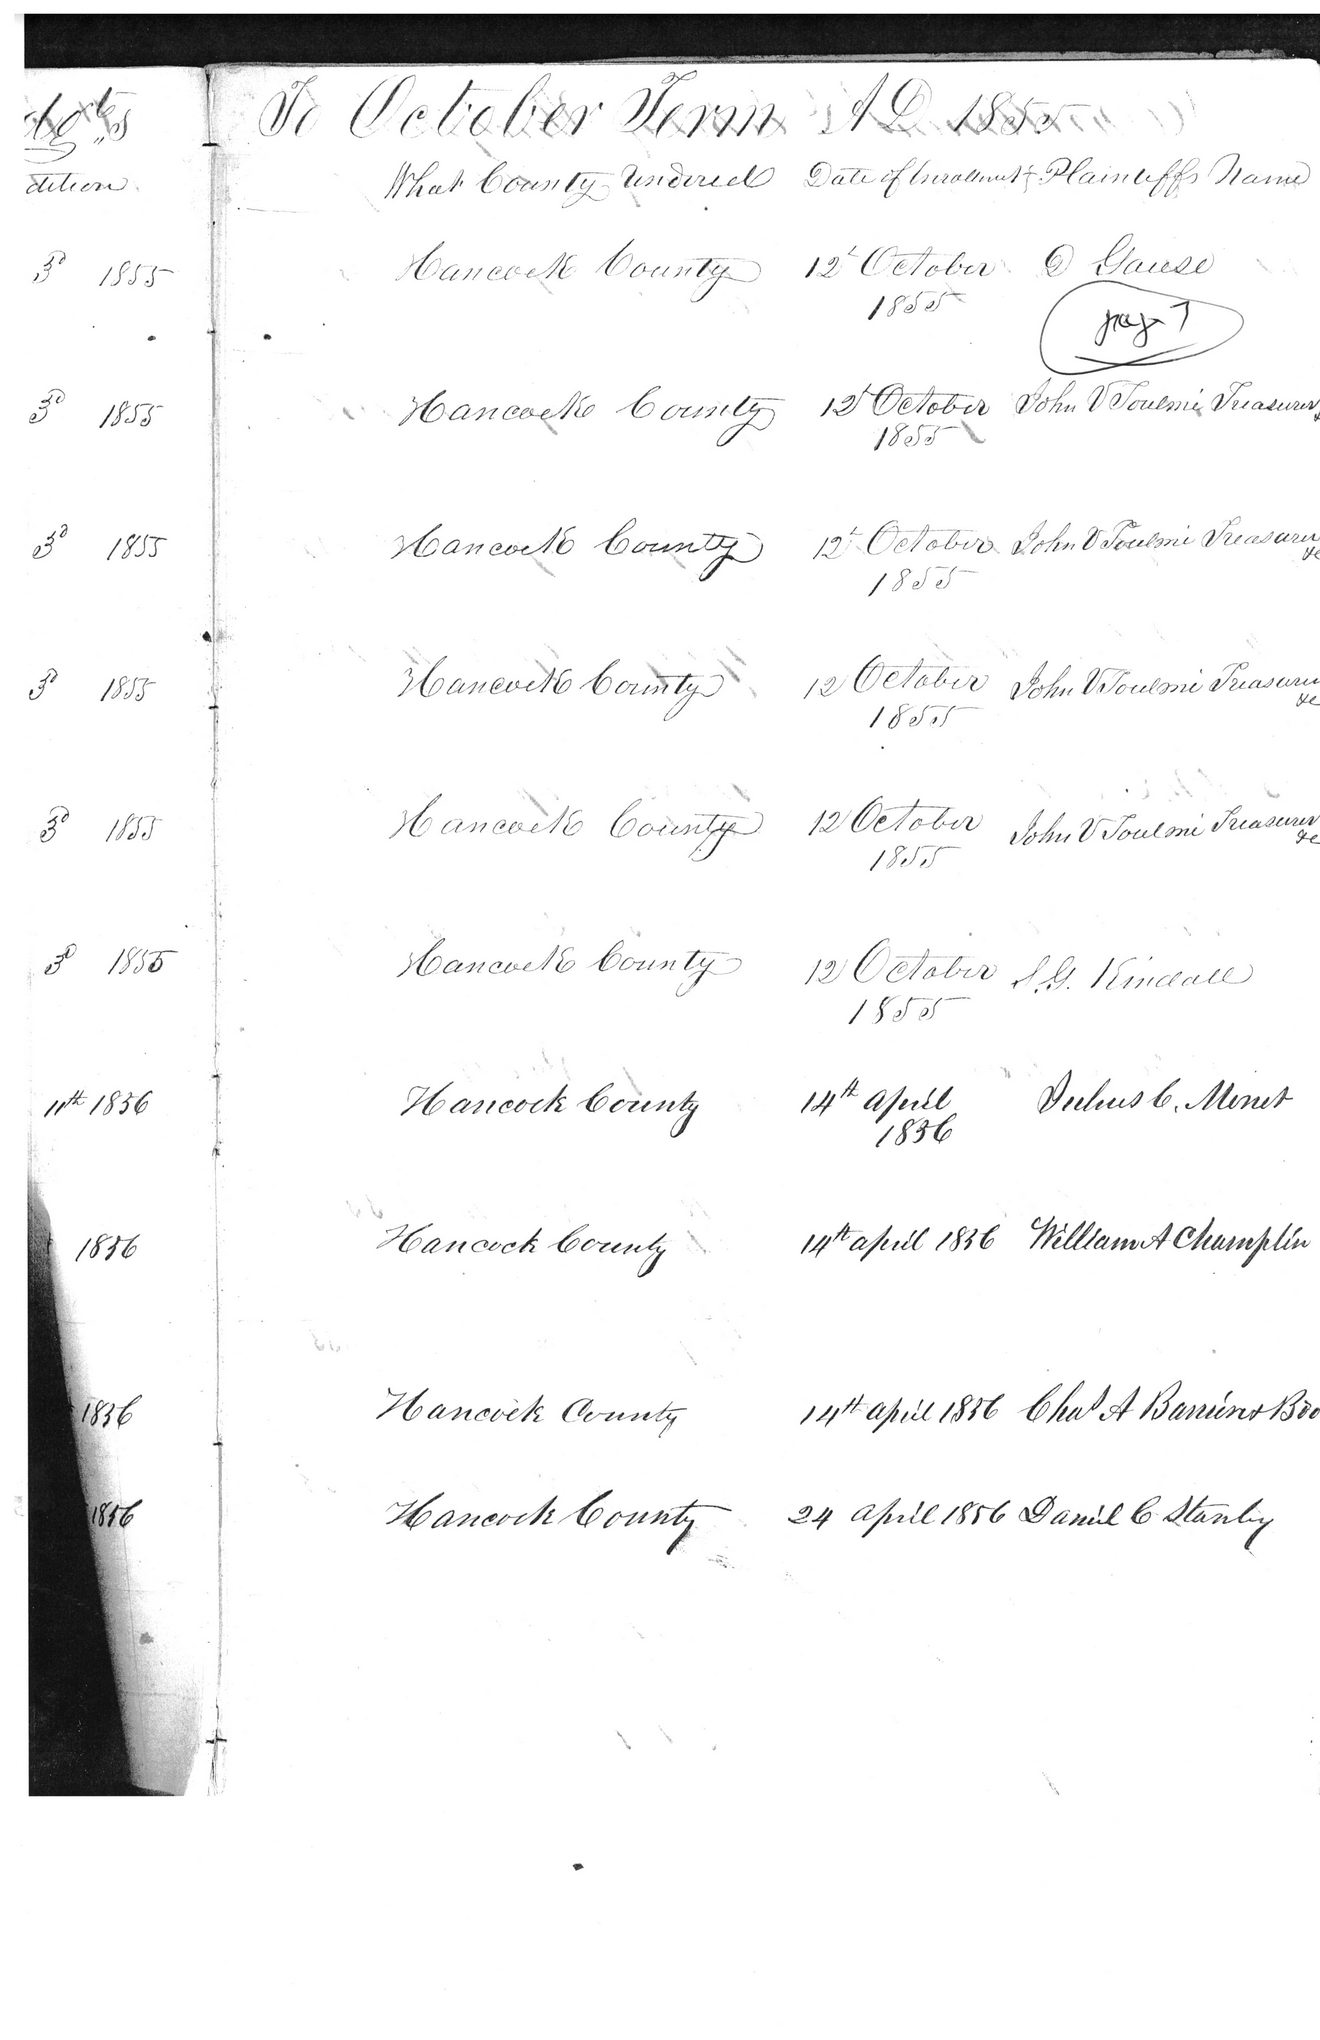 To October Term A D 1855
dition. What County Rendered Date of Enrollment Plaintiffs Name
3d 1855 Hancock County 12t October D Gause
1855
page 7
3d 1855 Hancock County 12t October John V Toulmi Treasurer &
1855
3d 1855 Hancock County 12t October John V Toulmi Treasurer
1855 &c
3d 1855 Hancock County 12 October John V Toulmi Treasurer
1855 &c
3d 1855 Hancock County 12 October John V Toulmi Treasurer
1855 &c
3d 1855 Hancock County 12 October S. G. Kindall
1855
11th 1856 Hancock County 14th april Julius C. Monet
1856
1856 Hancock County 14th april 1856 William A Champlin
1856 Hancock County 14th april 1856 Chas A Barriere & Bro
1856 Hancock County 24 april 1856 Daniel C Stanly